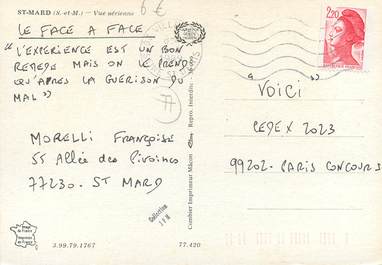 ST-MARD (S.-et-M.) — Vue aérienne
6 €
LE FACE A FACE
"L'EXPERIENCE EST UN BON
REMEDE MAIS ON LE PREND
QU'APRES LA GUERISON DU
MAL"
MORELLI Françoise
55 Allée des Pivoines
77230. ST MARD
Collection
3.99.79.1767
77.420
Combier Imprimeur Mâcon
Repro. Interdite.
2,20
"VOICI"
CEDEX 2023
99202. PARIS CONCOURS